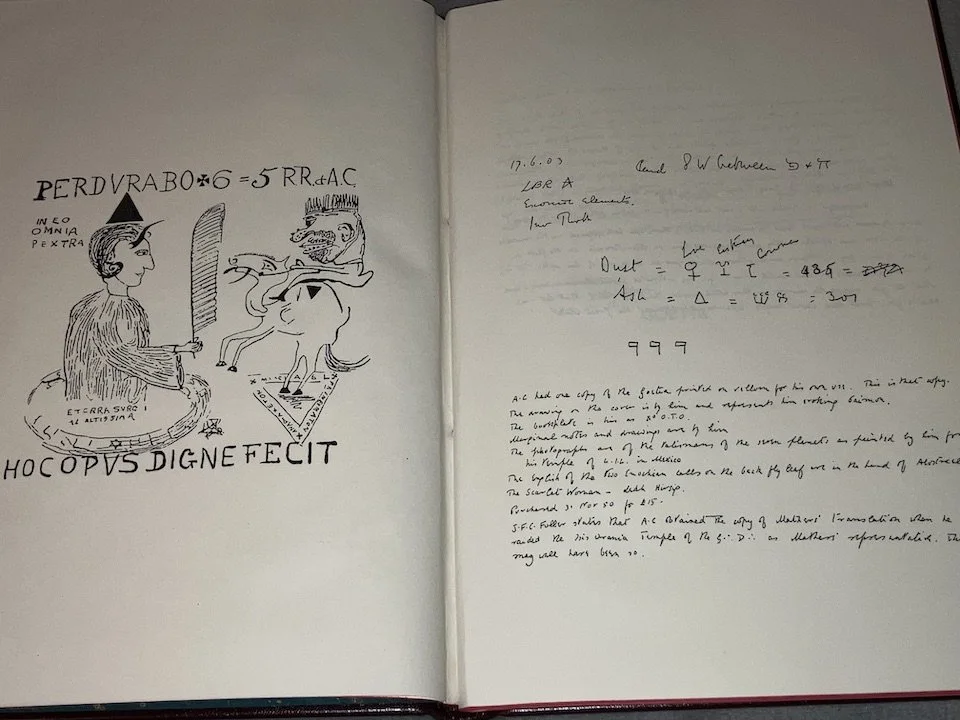 PERDVRABO✠6=5 RR.et A.C
IN EO
OMNIA
PEXTRA
ET TERRA SURGI
ALTISSIMA
HOC OPVS DIGNE FECIT
17.6.03
and 8 W between ♄ + ♊
LBR A
Elements.
Dust = ♀ = 435 =
Ash = △ = = 301
9 9 9
A.C had one copy of the Goetia printed on vellum for his own use. This is that copy.
The drawing on the cover is by him and represents him evoking
The bookplate is his as 5° O.T.O.
Marginal notes and drawings are by him
The photographs are of the talismans of the seven planets as painted by him for
his temple of L.I.L. in Mexico
The English of the two Enochian calls on the back fly leaf are in the hand of
The Scarlet Woman - Leah Hirsig.
Purchased 30 Nov 50 for £15.
J.F.C. Fuller states that A.C obtained the copy of Mathers' translation when he
raided the Isis Urania Temple of the G∴ D∴ as Mathers' representative. This
may well have been so.